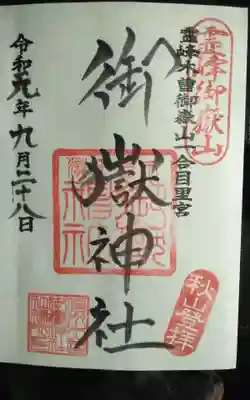 霊峰御嶽山
霊峰木曽御嶽山一合目里宮
御嶽神社
令和元年九月二十八日
秋山登拝